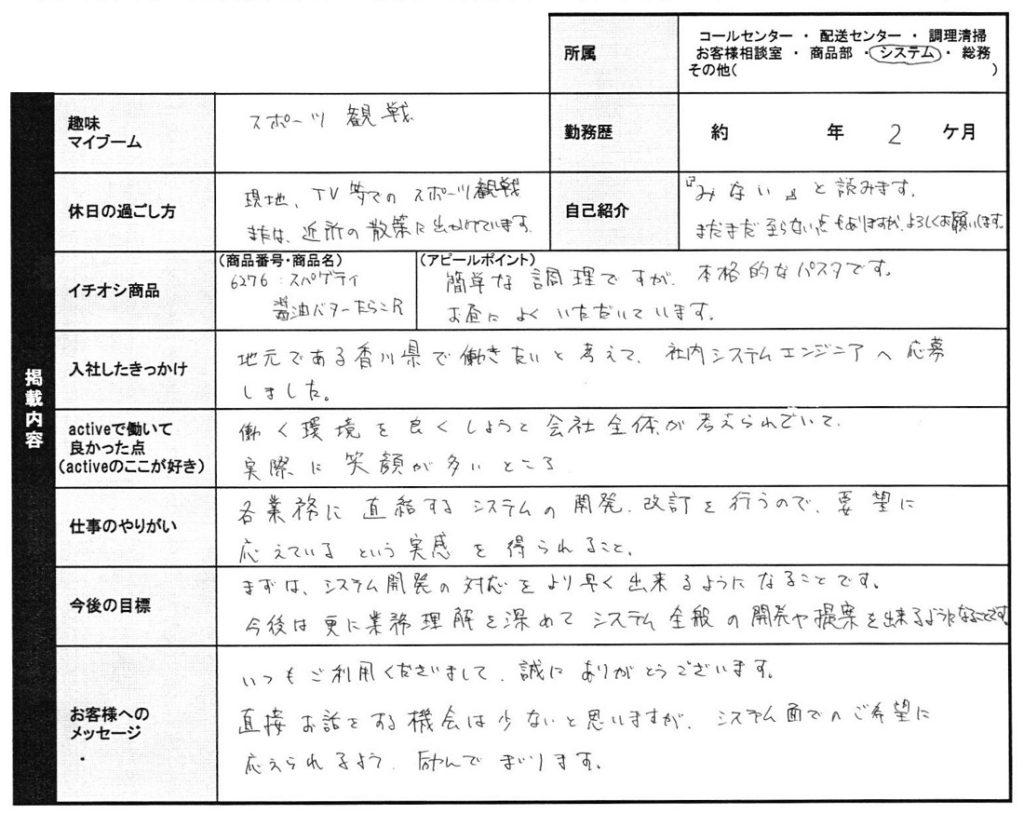 所属
コールセンター ・ 配送センター ・ 調理清掃
お客様相談室 ・ 商品部 ・ システム ・ 総務
その他( )
掲載内容
趣味
マイブーム
スポーツ 観戦
勤務歴
約 年 2 ケ月
休日の過ごし方
現地、TV等でのスポーツ観戦
または、近所の散策に出かけています。
自己紹介
『みない』と読みます。
まだまだ至らない点もありますが、よろしくお願いします。
イチオシ商品
(商品番号・商品名)
6276:スパゲティ
醤油バターたらこR
(アピールポイント)
簡単な調理ですが、本格的なパスタです。
お昼によくいただいています。
入社したきっかけ
地元である香川県で働きたいと考えて、社内システムエンジニアへ応募
しました。
activeで働いて
良かった点
(activeのここが好き)
働く環境を良くしようと会社全体が考えられていて、
実際に笑顔が多いところ
仕事のやりがい
各業務に直結するシステムの開発、改訂を行うので、要望に
応えているという実感を得られること。
今後の目標
まずは、システム開発の対応をより早く出来るようになることです。
今後は更に業務理解を深めてシステム全般の開発や提案を出来るようになることです
お客様への
メッセージ
いつもご利用くださいまして、誠にありがとうございます。
直接お話をする機会は少ないと思いますが、システム面でのご希望に
応えられるよう、励んでまいります。